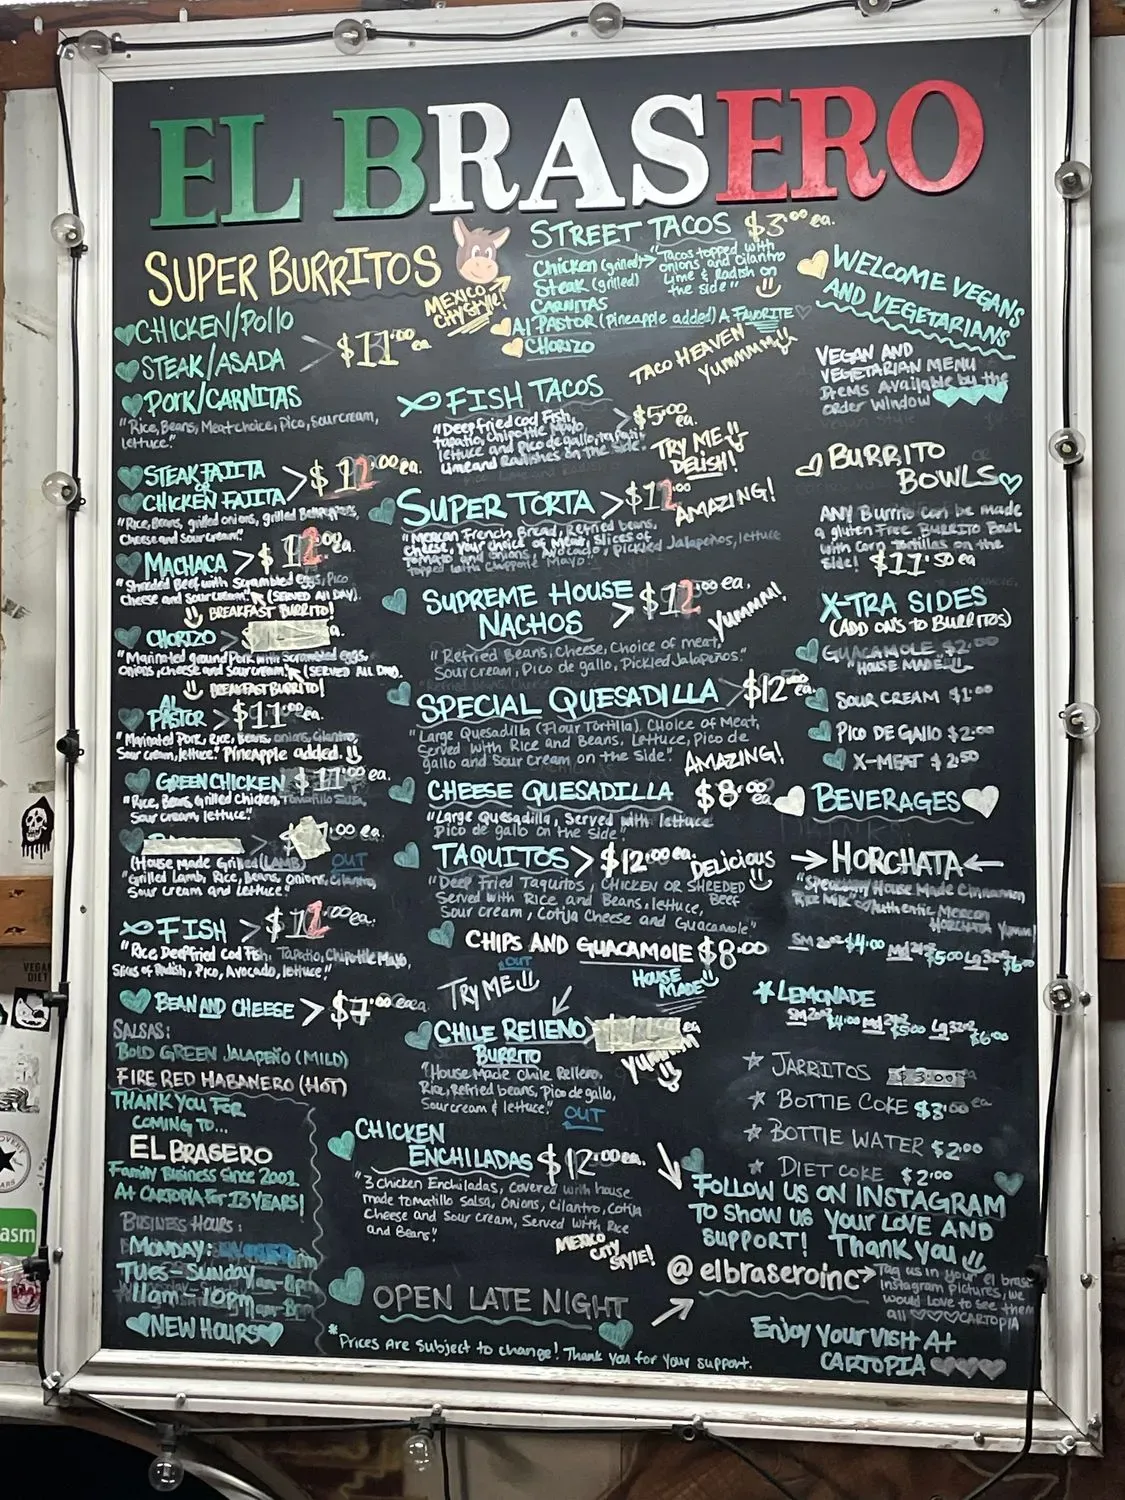 EL BRASERO
SUPER BURRITOS
MEXICO
CITY STYLE!
CHICKEN/POLLO
STEAK/ASADA
$11.00 ea
PORK/CARNITAS
"Rice, Beans, Meat choice, Pico, Sour cream,
lettuce."
STEAK FAJITA
OR
CHICKEN FAJITA > $12.00 ea.
"Rice, Beans, grilled onions, grilled Bell peppers,
Cheese and sour cream."
MACHACA > $12.00 ea.
"Shreded Beef with Scrambled eggs, Pico
Cheese and Sour cream." (SERVED All DAY).
BREAKFAST BURRITO!
CHORIZO >
"Marinated ground Pork with Scrambled eggs,
onions, cheese and Sour cream" (SERVED ALL DAY).
BREAKFAST BURRITO!
AL
PASTOR > $11.00 ea.
"Marinated Pork, Rice, Beans, onions, Cilantro,
Sour cream, lettuce." Pineapple added.
GREEN CHICKEN $11.00 ea.
"Rice, Beans, Grilled Chicken, Tomatillo Salsa,
Sour cream, lettuce."
(House Made Grilled (LAMB) OUT
"Grilled Lamb, Rice, Beans, Onions, Cilantro,
Sour cream and lettuce."
FISH > $12.00 ea.
"Rice, Deepfried Cod Fish, Tapatio, Chipotle Mayo,
Slices of Radish, Pico, Avocado, lettuce."
BEAN AND CHEESE > $7.00 each
SALSAS:
BOLD GREEN JALAPEÑO (MILD)
FIRE RED HABANERO (HOT)
THANK YOU FOR
COMING TO...
EL BRASERO
Family Business Since 2001
At CARTOPIA For 13 YEARS!
BUSINESS HOURS:
MONDAY:
Tues - Sunday
11am - 10pm
NEW HOURS
STREET TACOS $3.00 ea.
Chicken (grilled) "Tacos topped with
onions and Cilantro
Steak (grilled) Lime & Radish on
the side"
CARNITAS
Al PASTOR (Pineapple added) A FAVORITE
CHORIZO
TACO HEAVEN
Yummmy!
FISH TACOS
$5.00 ea.
"Deep fried Cod Fish,
tapatio, chipotle Mayo,
lettuce and Pico de gallo,
Lime and Radishes on the side."
TRY ME
DELISH!
SUPER TORTA > $12.00
AMAZING!
"Mexican French Bread, Refried beans,
Cheese, Your choice of Meat, Slices of
Tomato, Onions, Avocado, Pickled Jalapeños, lettuce
topped with Chipotle Mayo"
SUPREME HOUSE
NACHOS > $12.00 ea.
Yummm!
"Refried Beans, Cheese, Choice of meat,
Sour cream, Pico de gallo, Pickled Jalapeños."
SPECIAL QUESADILLA > $12.00 ea.
"Large Quesadilla (Flour Tortilla), Choice of Meat,
Served with Rice and Beans, Lettuce, Pico de
gallo and Sour cream on the Side."
AMAZING!
CHEESE QUESADILLA $8.00 ea.
"Large Quesadilla, Served with lettuce
Pico de gallo on the side"
TAQUITOS > $12.00 ea.
DELICIOUS
"Deep Fried Taquitos, CHICKEN OR SHREDED
Beef
Served with Rice and Beans, lettuce,
Sour cream, Cotija Cheese and Guacamole"
CHIPS AND GUACAMOLE $8.00
OUT
HOUSE
MADE
TRY ME
CHILE RELLENO > ea
BURRITO
Yummm
"House Made Chile Relleno,
Rice, Refried beans, Pico de gallo,
Sour cream & lettuce."
OUT
CHICKEN
ENCHILADAS $12.00 ea.
"3 Chicken Enchiladas, covered with house
made tomatillo Salsa, Onions, Cilantro, Cotija
Cheese and Sour cream, Served with Rice
and Beans"
MEXICO
City
STYLE!
OPEN LATE NIGHT
*Prices are subject to change! Thank you for your support.
WELCOME VEGANS
AND VEGETARIANS
VEGAN AND
VEGETARIAN MENU
Items Available by the
order window
BURRITO
BOWLS
ANY Burrito can be made
a gluten free BURRITO Bowl
with Corn Tortillas on the
side! $11.50 ea
X-TRA SIDES
(ADD ON'S to BURRITOS)
GUACAMOLE $2.00
"HOUSE MADE"
SOUR CREAM $1.00
PICO DE GALLO $2.00
X-MEAT $2.50
BEVERAGES
HORCHATA
House Made Cinnamon
Rice Milk Authentic Mexican
HORCHATA Yumm!
SM 20oz $4.00 Md 24oz $5.00 Lg 32oz $6.00
LEMONADE
SM 20oz $4.00 Md 24oz $5.00 Lg 32oz $6.00
JARRITOS $3.00
BOTTLE COKE $3.00 ea
BOTTLE WATER $2.00
DIET COKE $2.00
FOLLOW US ON INSTAGRAM
TO SHOW US YOUR LOVE AND
SUPPORT! Thank you
@elbraseroinc
Tag us in your el brasero
Instagram Pictures, we
would Love to see them
all CARTOPIA
Enjoy Your Visit At
CARTOPIA
VEGAN
DIET
asm